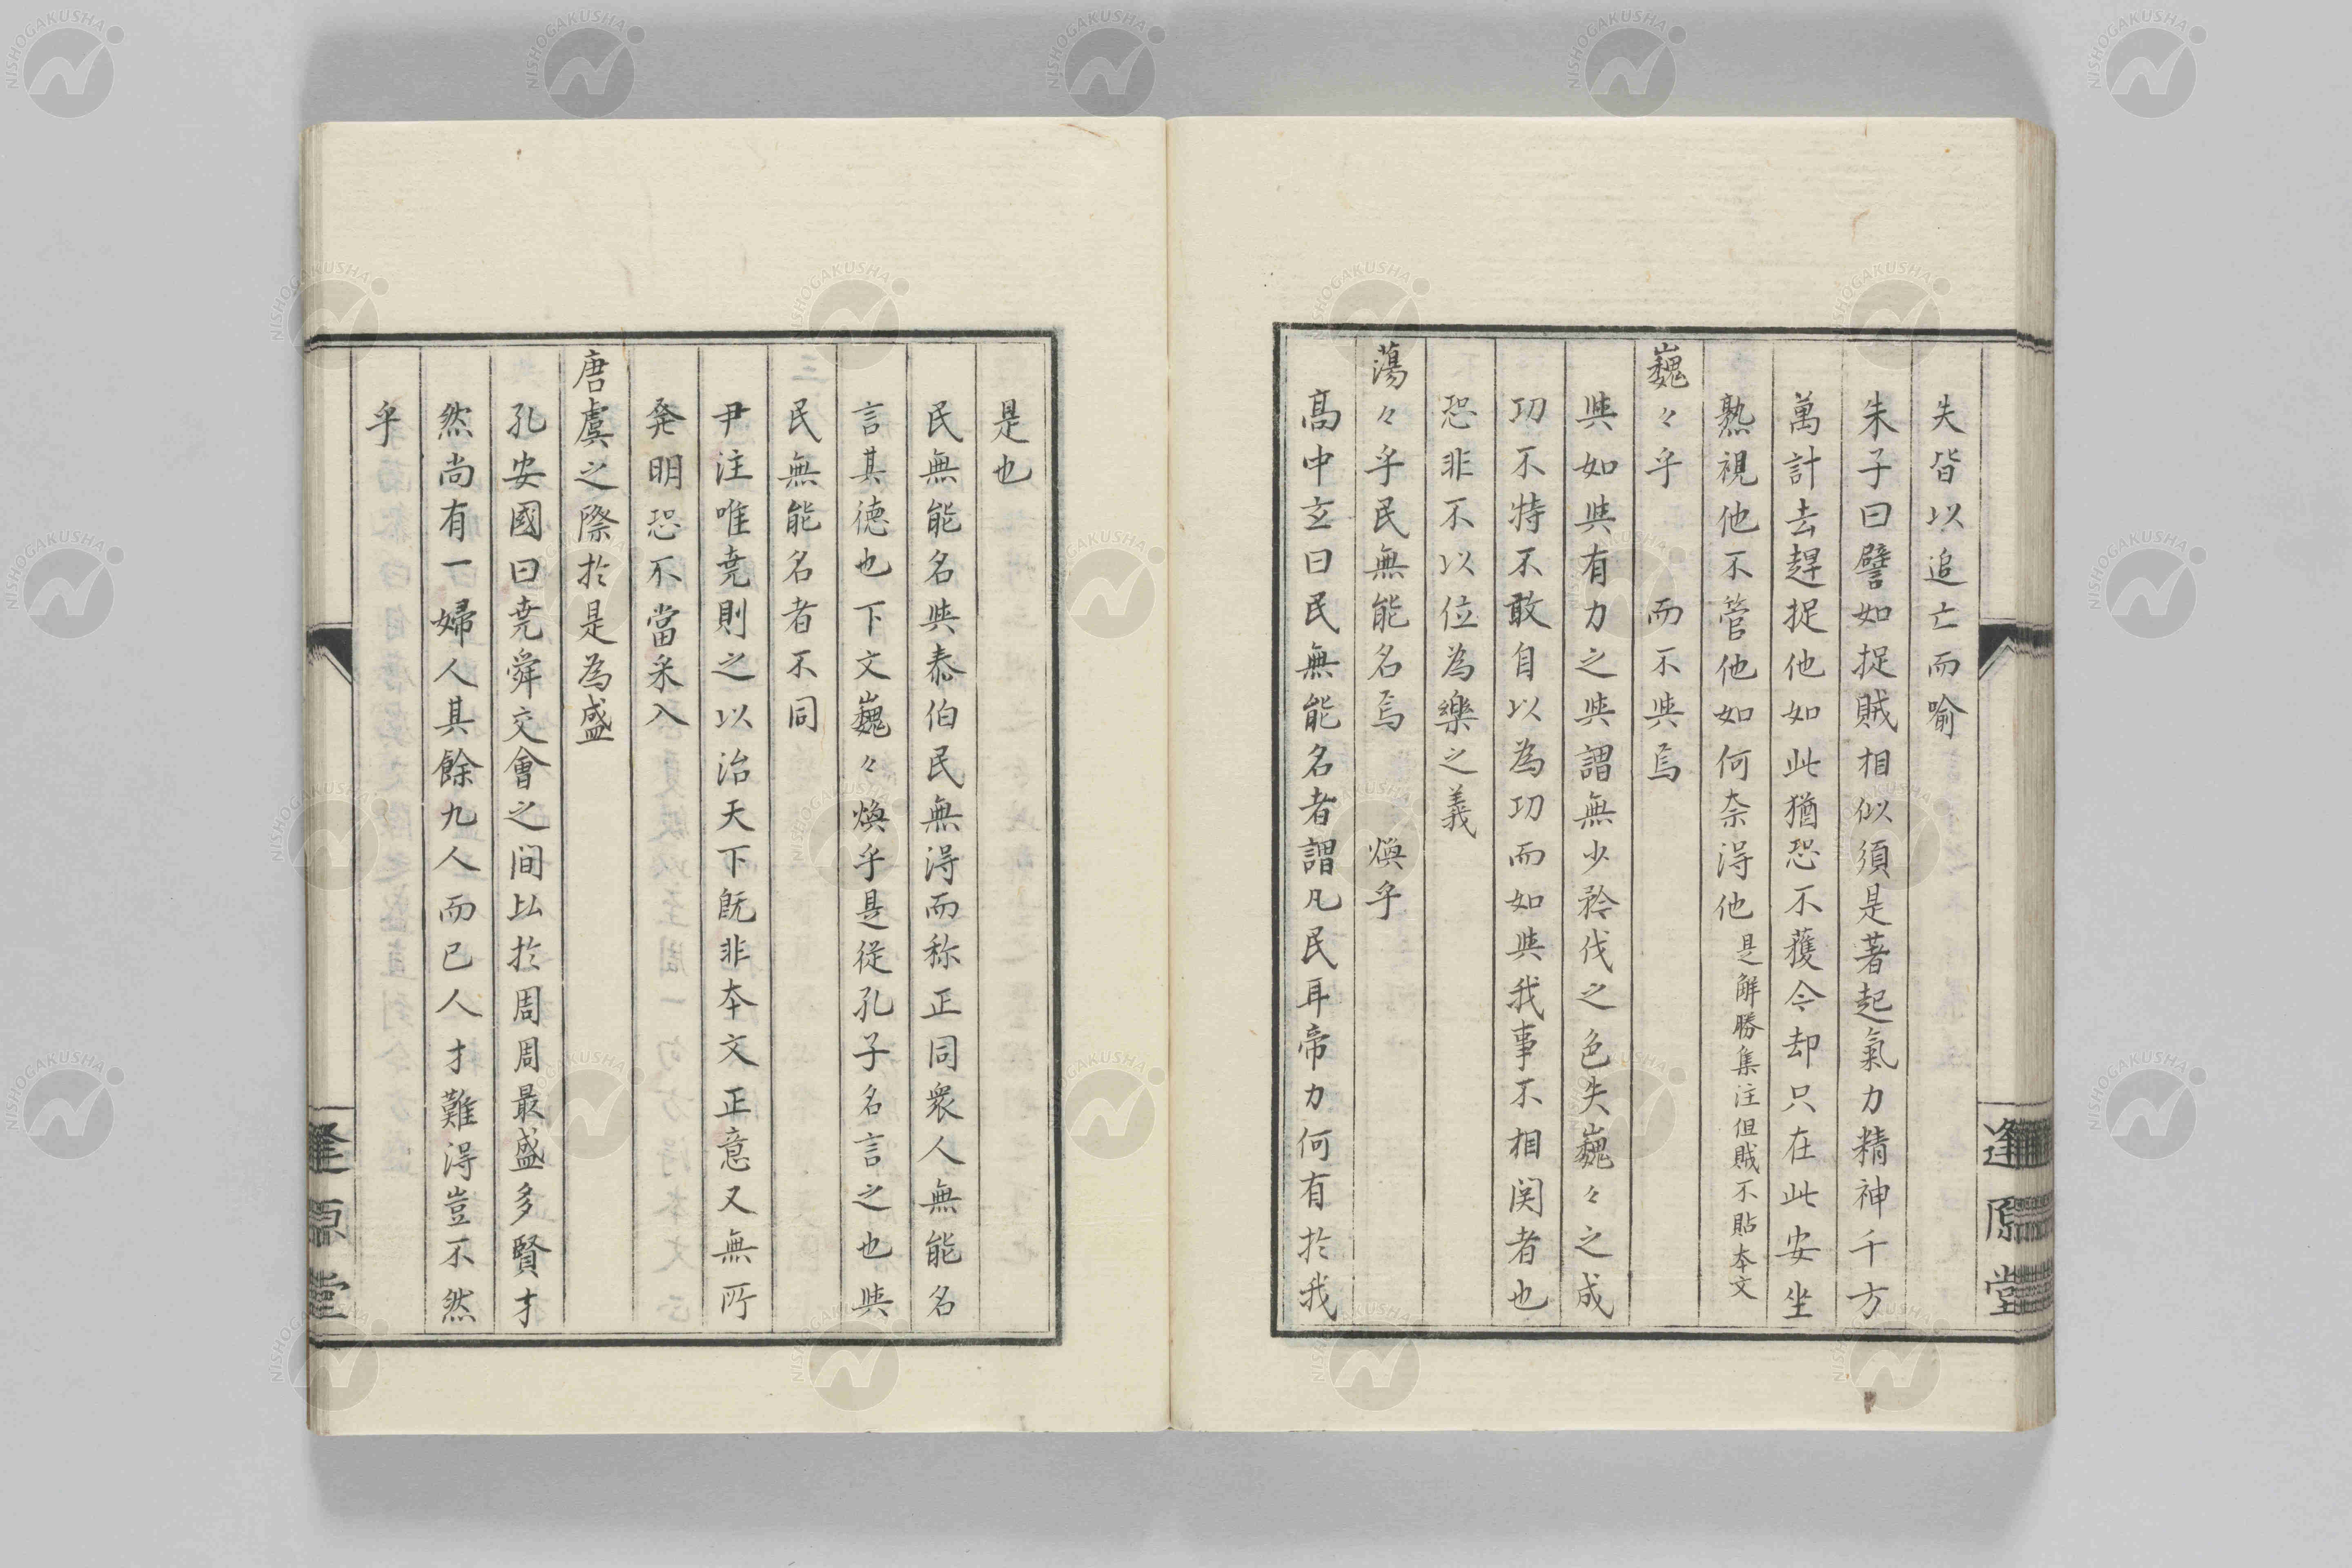 失皆以追亡而喻
朱子曰譬如捉賊相似須是著起氣力精神千方
萬計去趕捉他如此猶恐不獲今却只在此安坐
熟視他不管他如何奈得他是解勝集注但賊不貼本文
巍々乎 而不與焉
與如與有力之與謂無少矜伐之色失巍々之成
功不特不敢自以為功而如與我事不相関者也
恐非不以位為樂之義
蕩々乎民無能名焉 煥乎
高中玄曰民無能名者謂凡民耳帝力何有於我
是也
民無能名與泰伯民無得而称正同衆人無能名
言其德也下文巍々煥乎是從孔子名言之也與
民無能名者不同
尹注唯堯則之以治天下既非本文正意又無所
発明恐不當采入
唐虞之際於是為盛
孔安國曰堯舜交會之间比於周周最盛多賢才
然尚有一婦人其餘九人而已人才難得豈不然
乎
逢原堂
NISHOGAKUSHA